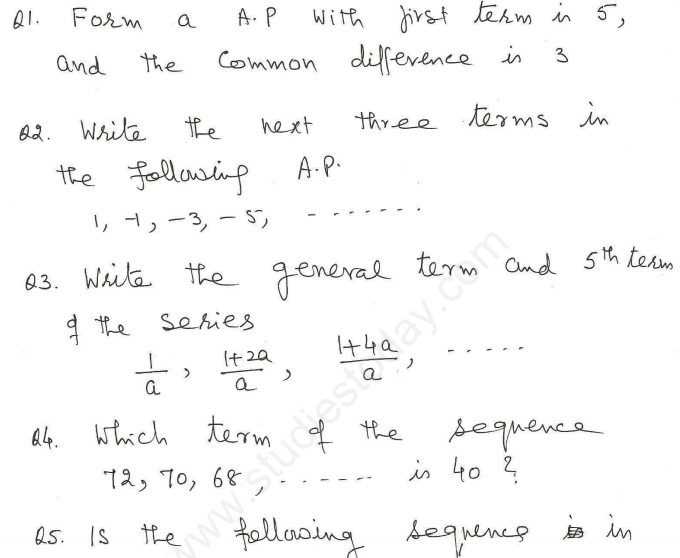 Q1. Form a A.P with first term is 5,
and the Common difference is 3
Q2. Write the next three terms in
the following A.P.
1, -1, -3, -5, -------
Q3. Write the general term and 5th term
of the series
1/a, (1+2a)/a, (1+4a)/a, -----
Q4. Which term of the sequence
72, 70, 68, ------ is 40 ?
Q5. Is the following sequence is in
www.studiestoday.com